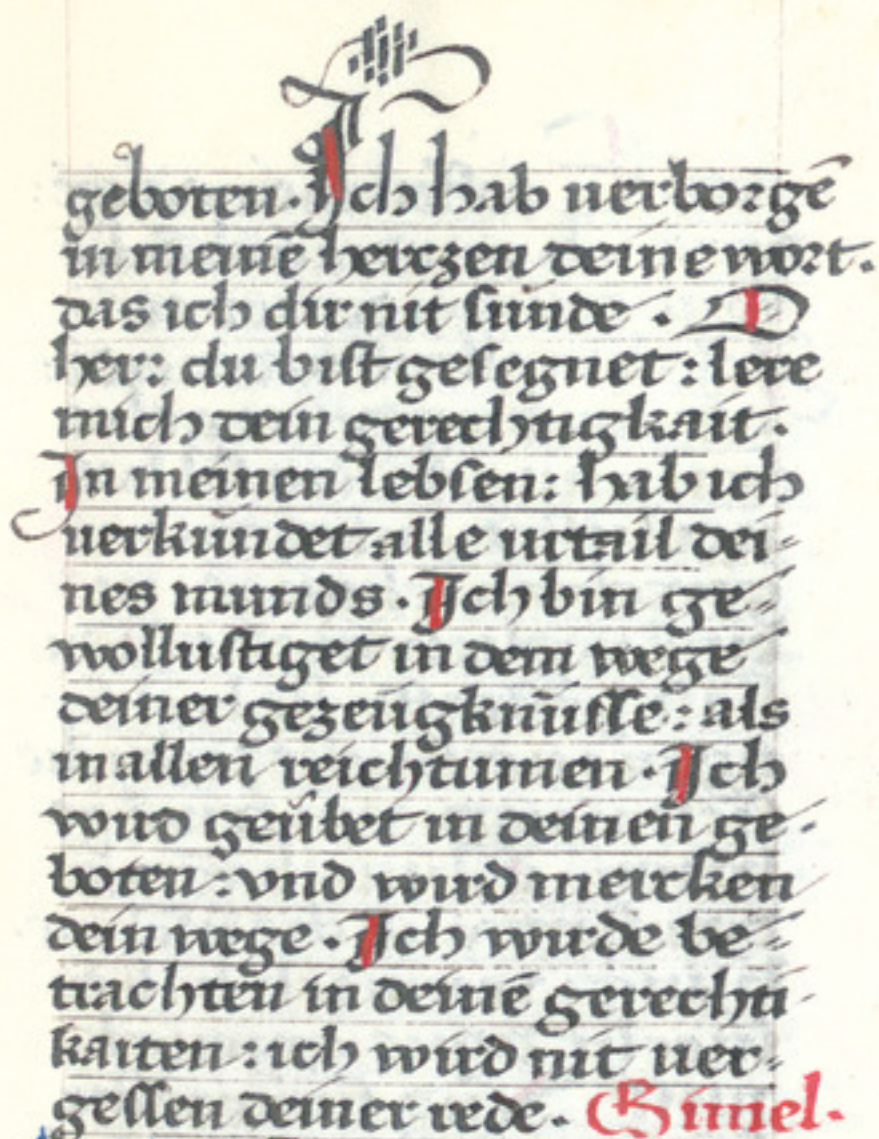 geboten. Ich hab uerborgē
in meinē herczen deine wort.
das ich dir nit sünde. O
her: du bist gesegnet: lere
mich dein gerechtigkait.
In meinen lebsen: hab ich
uerkündet alle urtail dei-
nes munds. Ich bin ge-
wollustiget in dem wege
deiner gezeügknüsse: als
in allen reichtumen. Ich
wird geübet in deinen ge-
boten: vnd wird mercken
dein wege. Ich wirde be-
trachten in deinē gerechti-
kaiten: ich wird nit uer-
gessen deiner rede. Gimel.